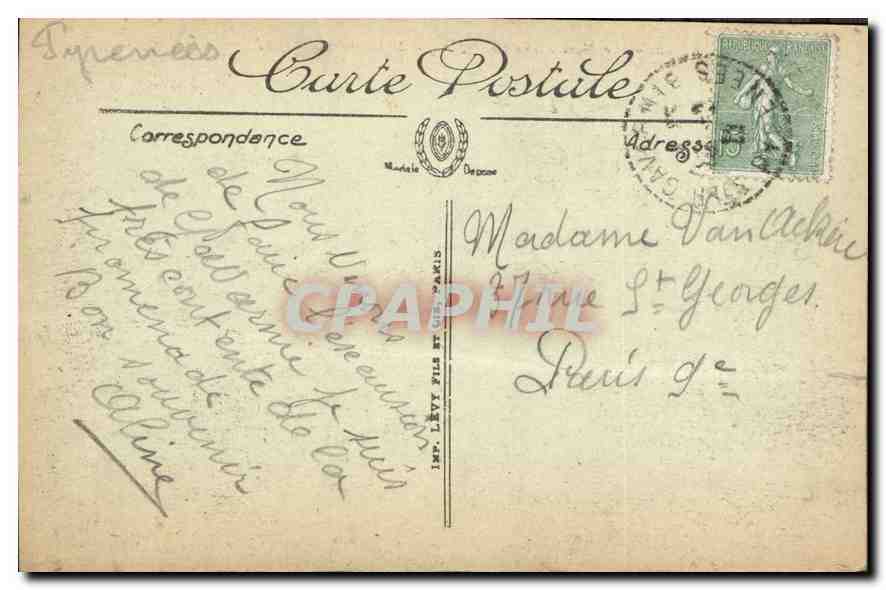 Pyrenées
Carte Postale
Correspondance
Adresse
Modèle Déposé
REPUBLIQUE FRANÇAISE
15
GAVARNIE
Nous venons
de faire l'excursion
de Gavarnie je suis
très contente de la
promenade
Bon souvenir
Aline
IMP. LÉVY FILS ET CIE, PARIS
Madame Van
27 rue St Georges
Paris 9e
CPAPHIL